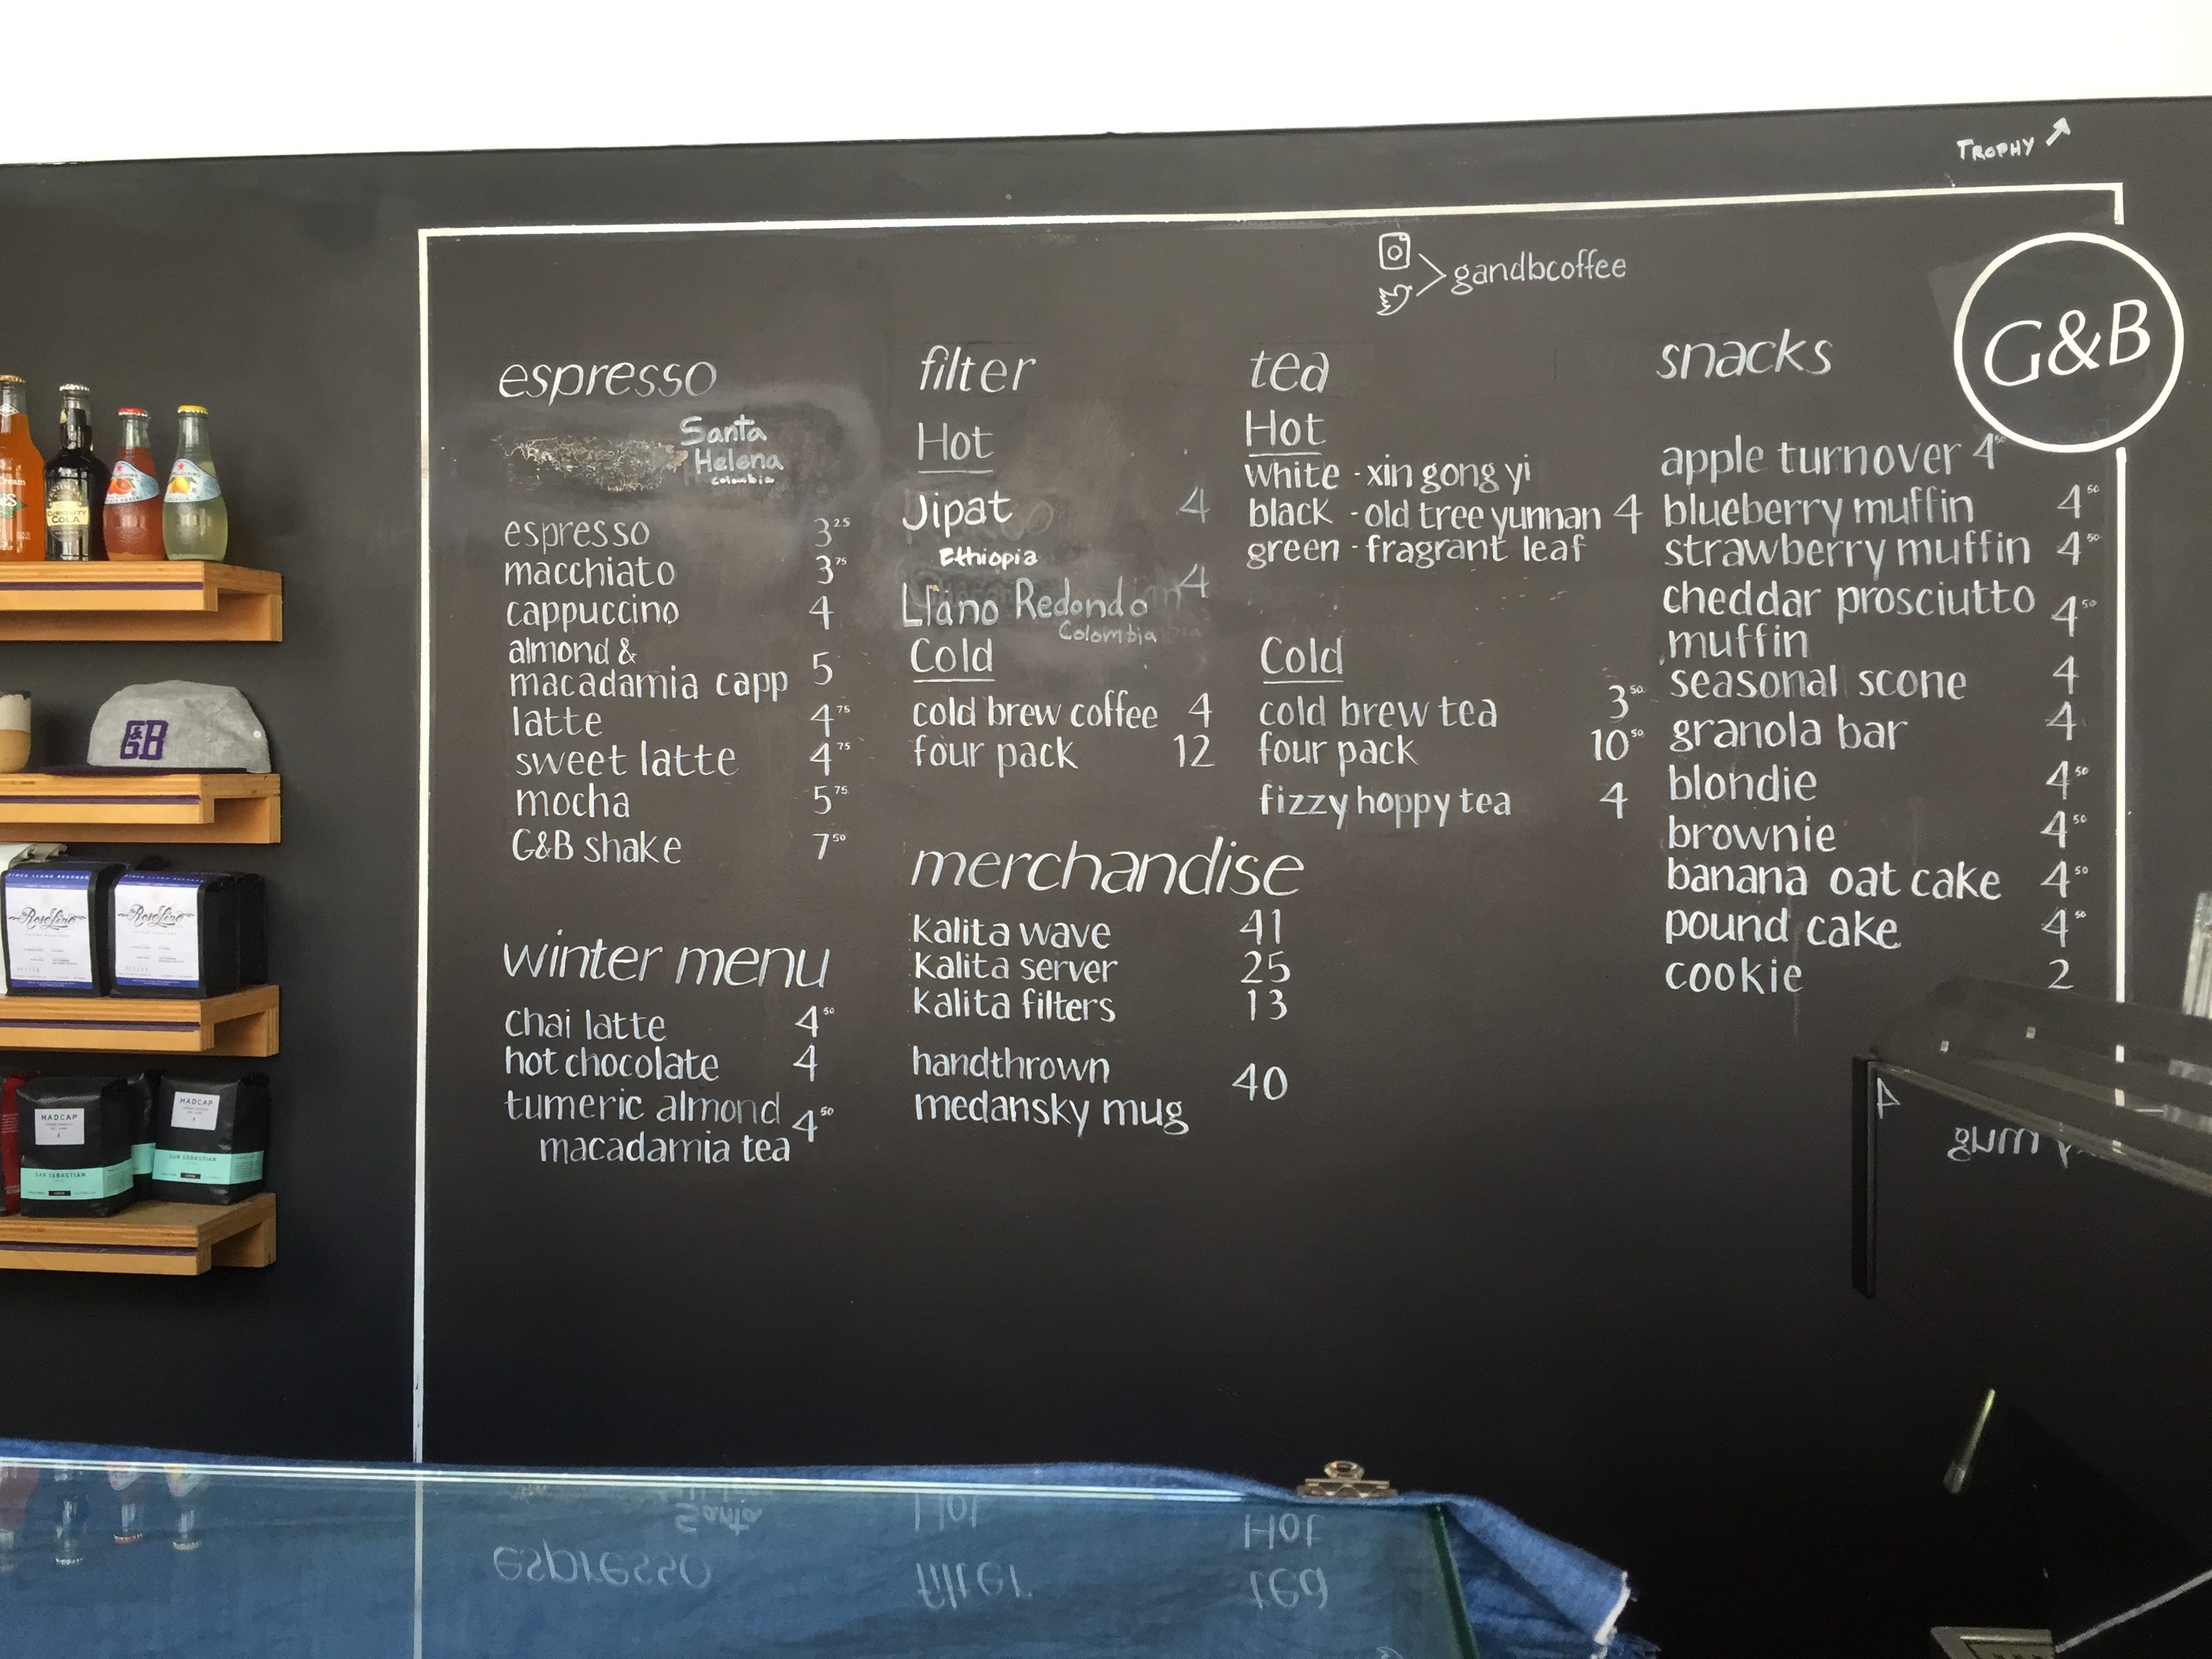 TROPHY
gandbcoffee
G&B
espresso
Santa
Helena
colombia
espresso 3 25
macchiato 3 75
cappuccino 4
almond &
macadamia capp 5
latte 4 75
sweet latte 4 75
mocha 5 75
G&B shake 7 50
winter menu
chai latte 4 50
hot chocolate 4
tumeric almond
macadamia tea 4 50
filter
Hot
Jipat 4
Ethiopia
Llano Redondo 4
Colombia
Cold
cold brew coffee 4
four pack 12
merchandise
kalita wave 41
kalita server 25
kalita filters 13
handthrown
medansky mug 40
tea
Hot
white - xin gong yi
black - old tree yunnan 4
green - fragrant leaf
Cold
cold brew tea 3 50
four pack 10 50
fizzy hoppy tea 4
snacks
apple turnover 4 50
blueberry muffin 4 50
strawberry muffin 4 50
cheddar prosciutto
muffin 4 50
seasonal scone 4
granola bar 4
blondie 4 50
brownie 4 50
banana oat cake 4 50
pound cake 4 50
cookie 2
CURIOSITY
COLA
G&B
RoseLine
RoseLine
MADCAP
SAN SEBASTIAN
MADCAP
SAN SEBASTIAN